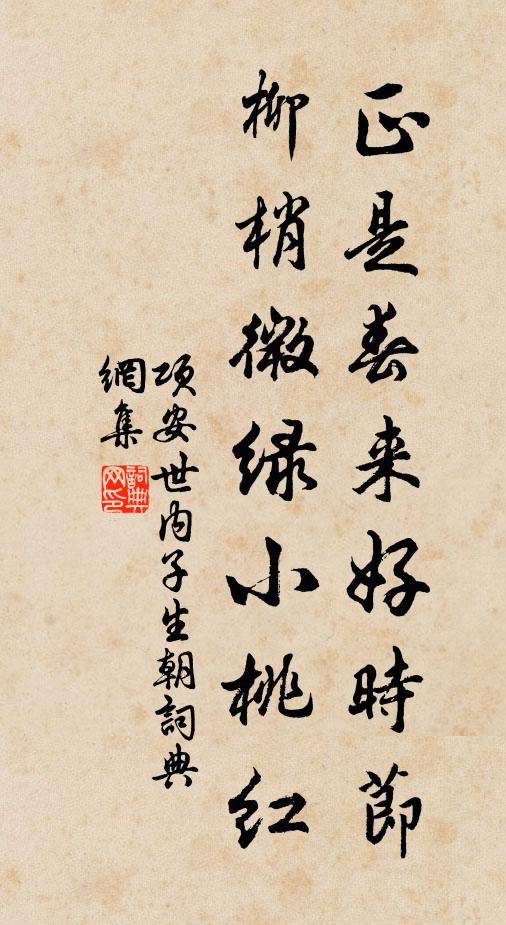 正是春来好時節
柳梢微绿小桃红
項安世内子生朝詞典
網集
詞典網印